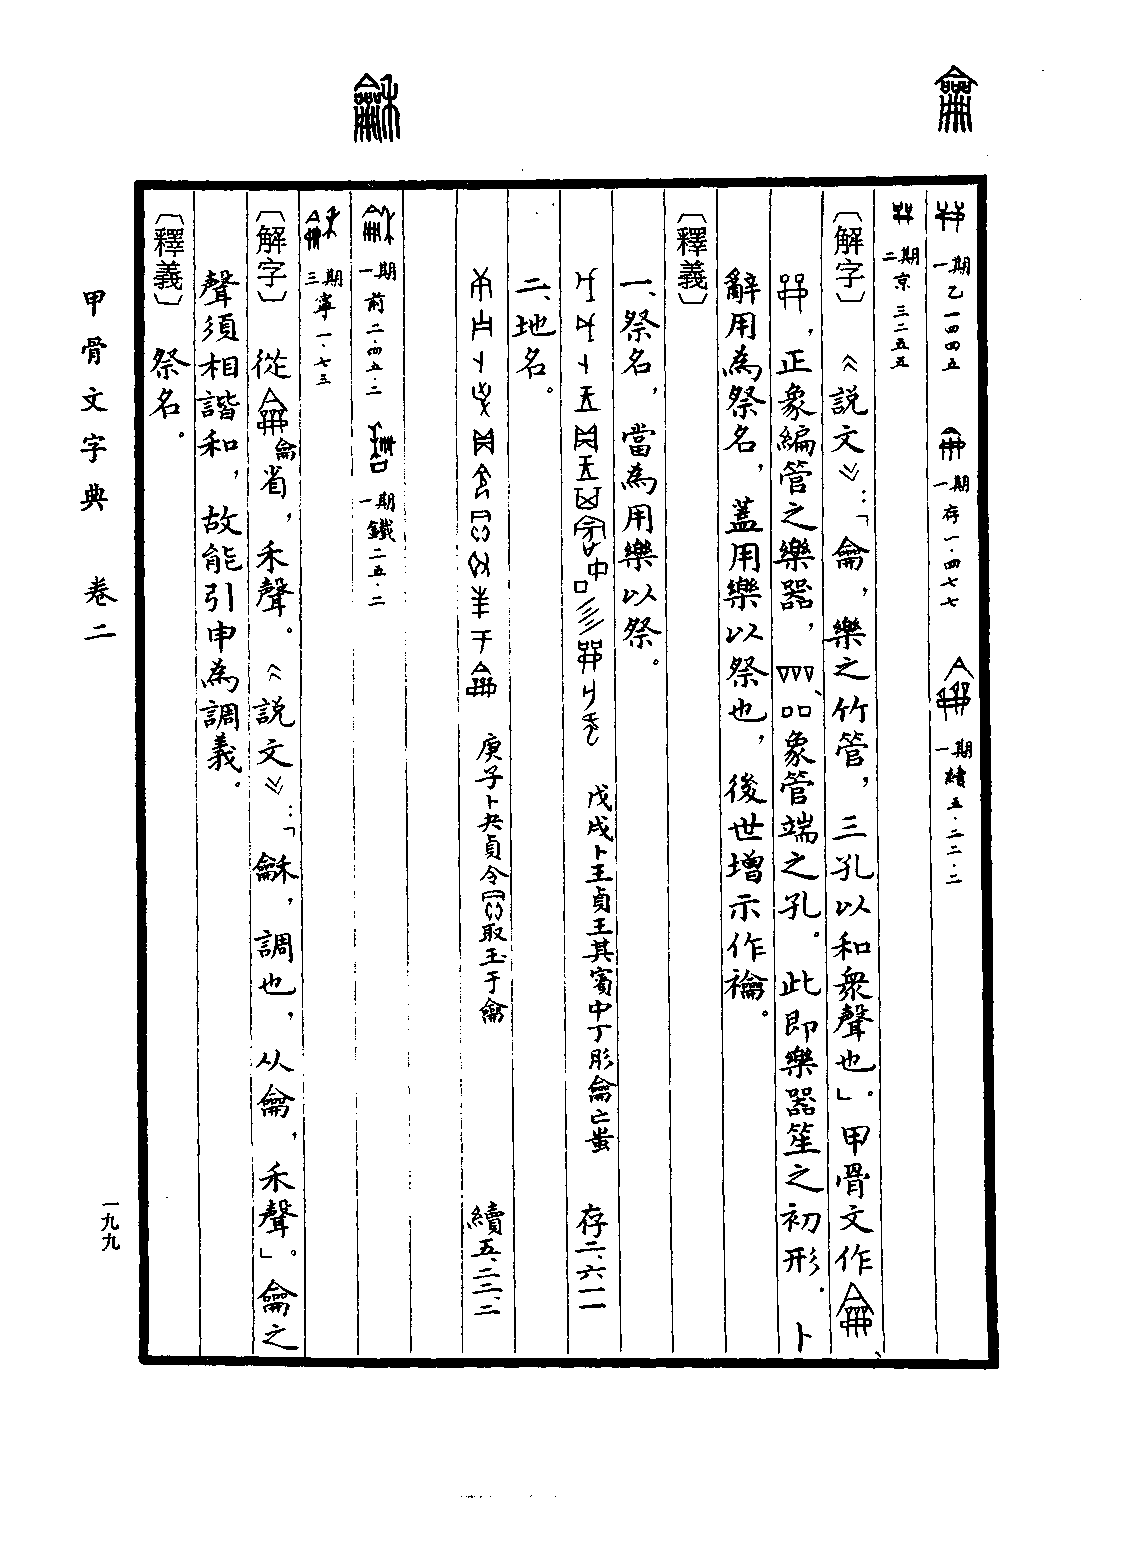 龠
一期 乙一四四五 一期 存一·四七七 一期 續五·二二·二
二期 京三二五五
〔解字〕 《説文》：「龠，樂之竹管，三孔以和衆聲也」。甲骨文作
，正象編管之樂器，象管端之孔。此即樂器笙之初形。卜
辭用為祭名，蓋用樂以祭也，後世增示作禴。
〔釋義〕
一、祭名，當為用樂以祭。
戊戌卜王貞王其賓中丁肜龠亡蚩 存二、六一一
二、地名。
庚子卜貞令取玉于龠 續五、二二、二
龢
一期 前二·四五·二 一期 鐵二五·二
三期 寧一·七三
〔解字〕 從龠省，禾聲。《説文》：「龢，調也，从龠，禾聲」。龠之
聲須相諧和，故能引申為調義。
〔釋義〕 祭名。
甲骨文字典 卷二
一九九